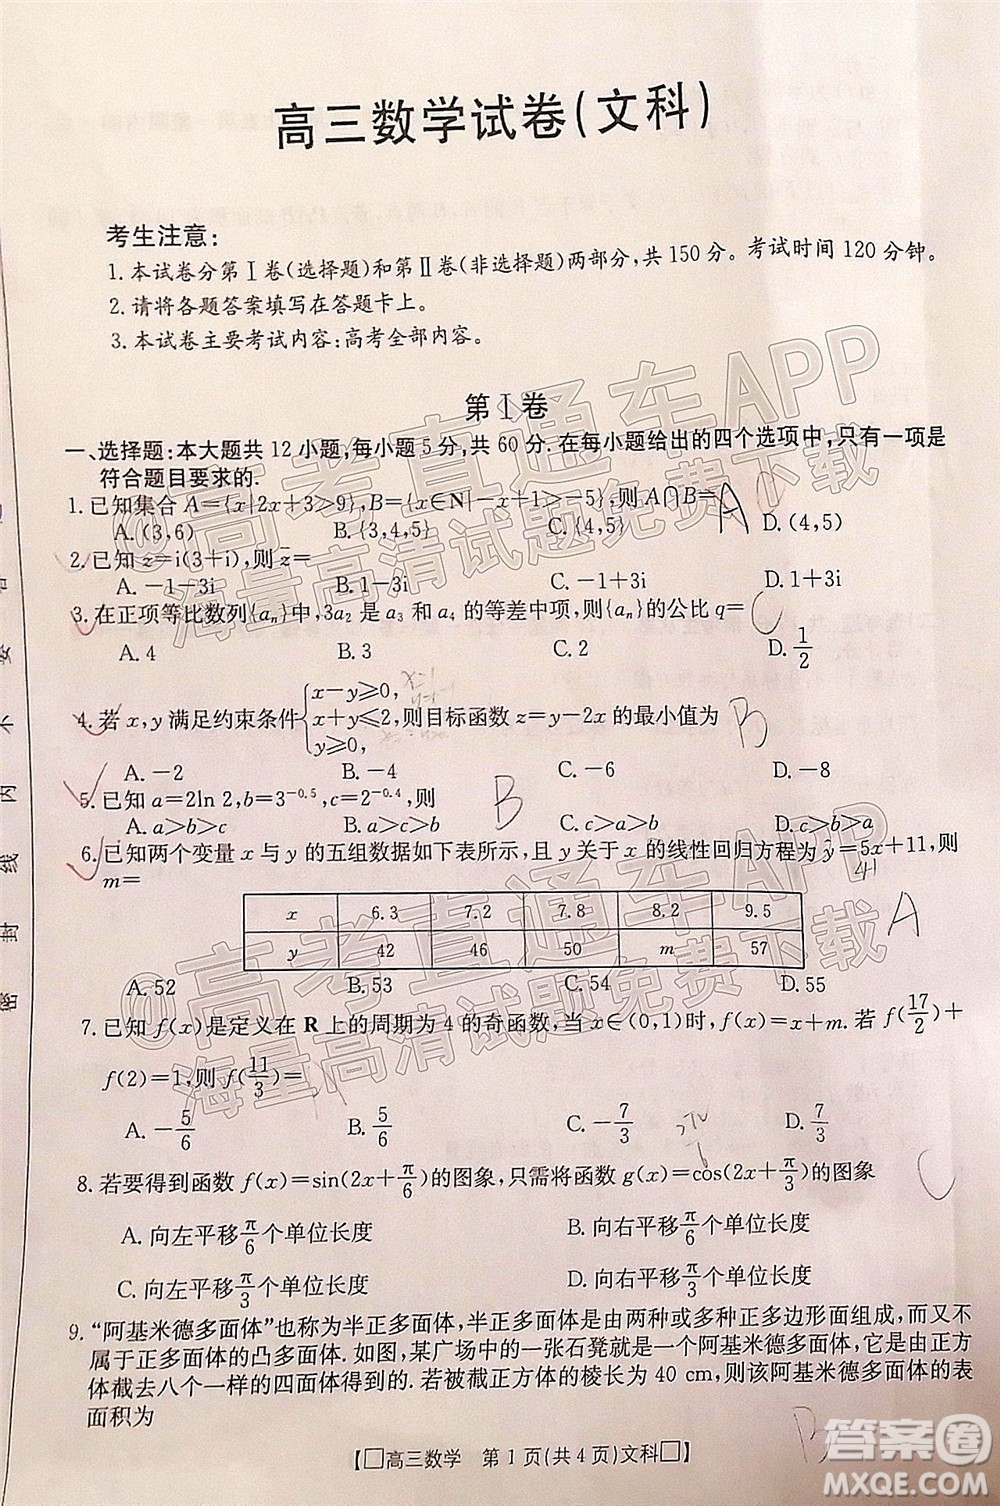 高三数学试卷(文科)
考生注意:
1.本试卷分第Ⅰ卷(选择题)和第Ⅱ卷(非选择题)两部分,共150分。考试时间120分钟。
2.请将各题答案填写在答题卡上。
3.本试卷主要考试内容:高考全部内容。
第Ⅰ卷
一、选择题:本大题共12小题,每小题5分,共60分.在每小题给出的四个选项中,只有一项是
符合题目要求的.
1.已知集合A={x|2x+3>9},B={x∈N|-x+1>-5},则A∩B= A
A.(3,6) B.{3,4,5} C.{4,5} D.(4,5)
2.已知z=i(3+i),则z̄=
A.-1-3i B.1-3i C.-1+3i D.1+3i
3.在正项等比数列{aₙ}中,3a₂是a₃和a₄的等差中项,则{aₙ}的公比q= C
A.4 B.3 C.2 D.1/2
4.若x,y满足约束条件{x-y≥0, x+y≤2, y≥0,则目标函数z=y-2x的最小值为 B
A.-2 B.-4 C.-6 D.-8
5.已知a=2ln 2,b=3^{-0.5},c=2^{-0.4},则 B
A.a>b>c B.a>c>b C.c>a>b D.c>b>a
6.已知两个变量x与y的五组数据如下表所示,且y关于x的线性回归方程为ŷ=5x+11,则
m=
x 6.3 7.2 7.8 8.2 9.5
y 42 46 50 m 57
A
A.52 B.53 C.54 D.55
7.已知f(x)是定义在R上的周期为4的奇函数,当x∈(0,1)时,f(x)=x+m.若f(17/2)+
f(2)=1,则f(11/3)=
A.-5/6 B.5/6 C.-7/3 D.7/3
8.若要得到函数f(x)=sin(2x+π/6)的图象,只需将函数g(x)=cos(2x+π/3)的图象 C
A.向左平移π/6个单位长度 B.向右平移π/6个单位长度
C.向左平移π/3个单位长度 D.向右平移π/3个单位长度
9.“阿基米德多面体”也称为半正多面体,半正多面体是由两种或多种正多边形面组成,而又不
属于正多面体的凸多面体.如图,某广场中的一张石凳就是一个阿基米德多面体,它是由正方
体截去八个一样的四面体得到的.若被截正方体的棱长为40 cm,则该阿基米德多面体的表
面积为
【□高三数学 第1页(共4页)文科□】
密 封 线 内 不 要 答
@高考直通车APP
海量高清试题免费下载
@高考直通车APP
海量高清试题免费下载
答案圈
MXQE.COM